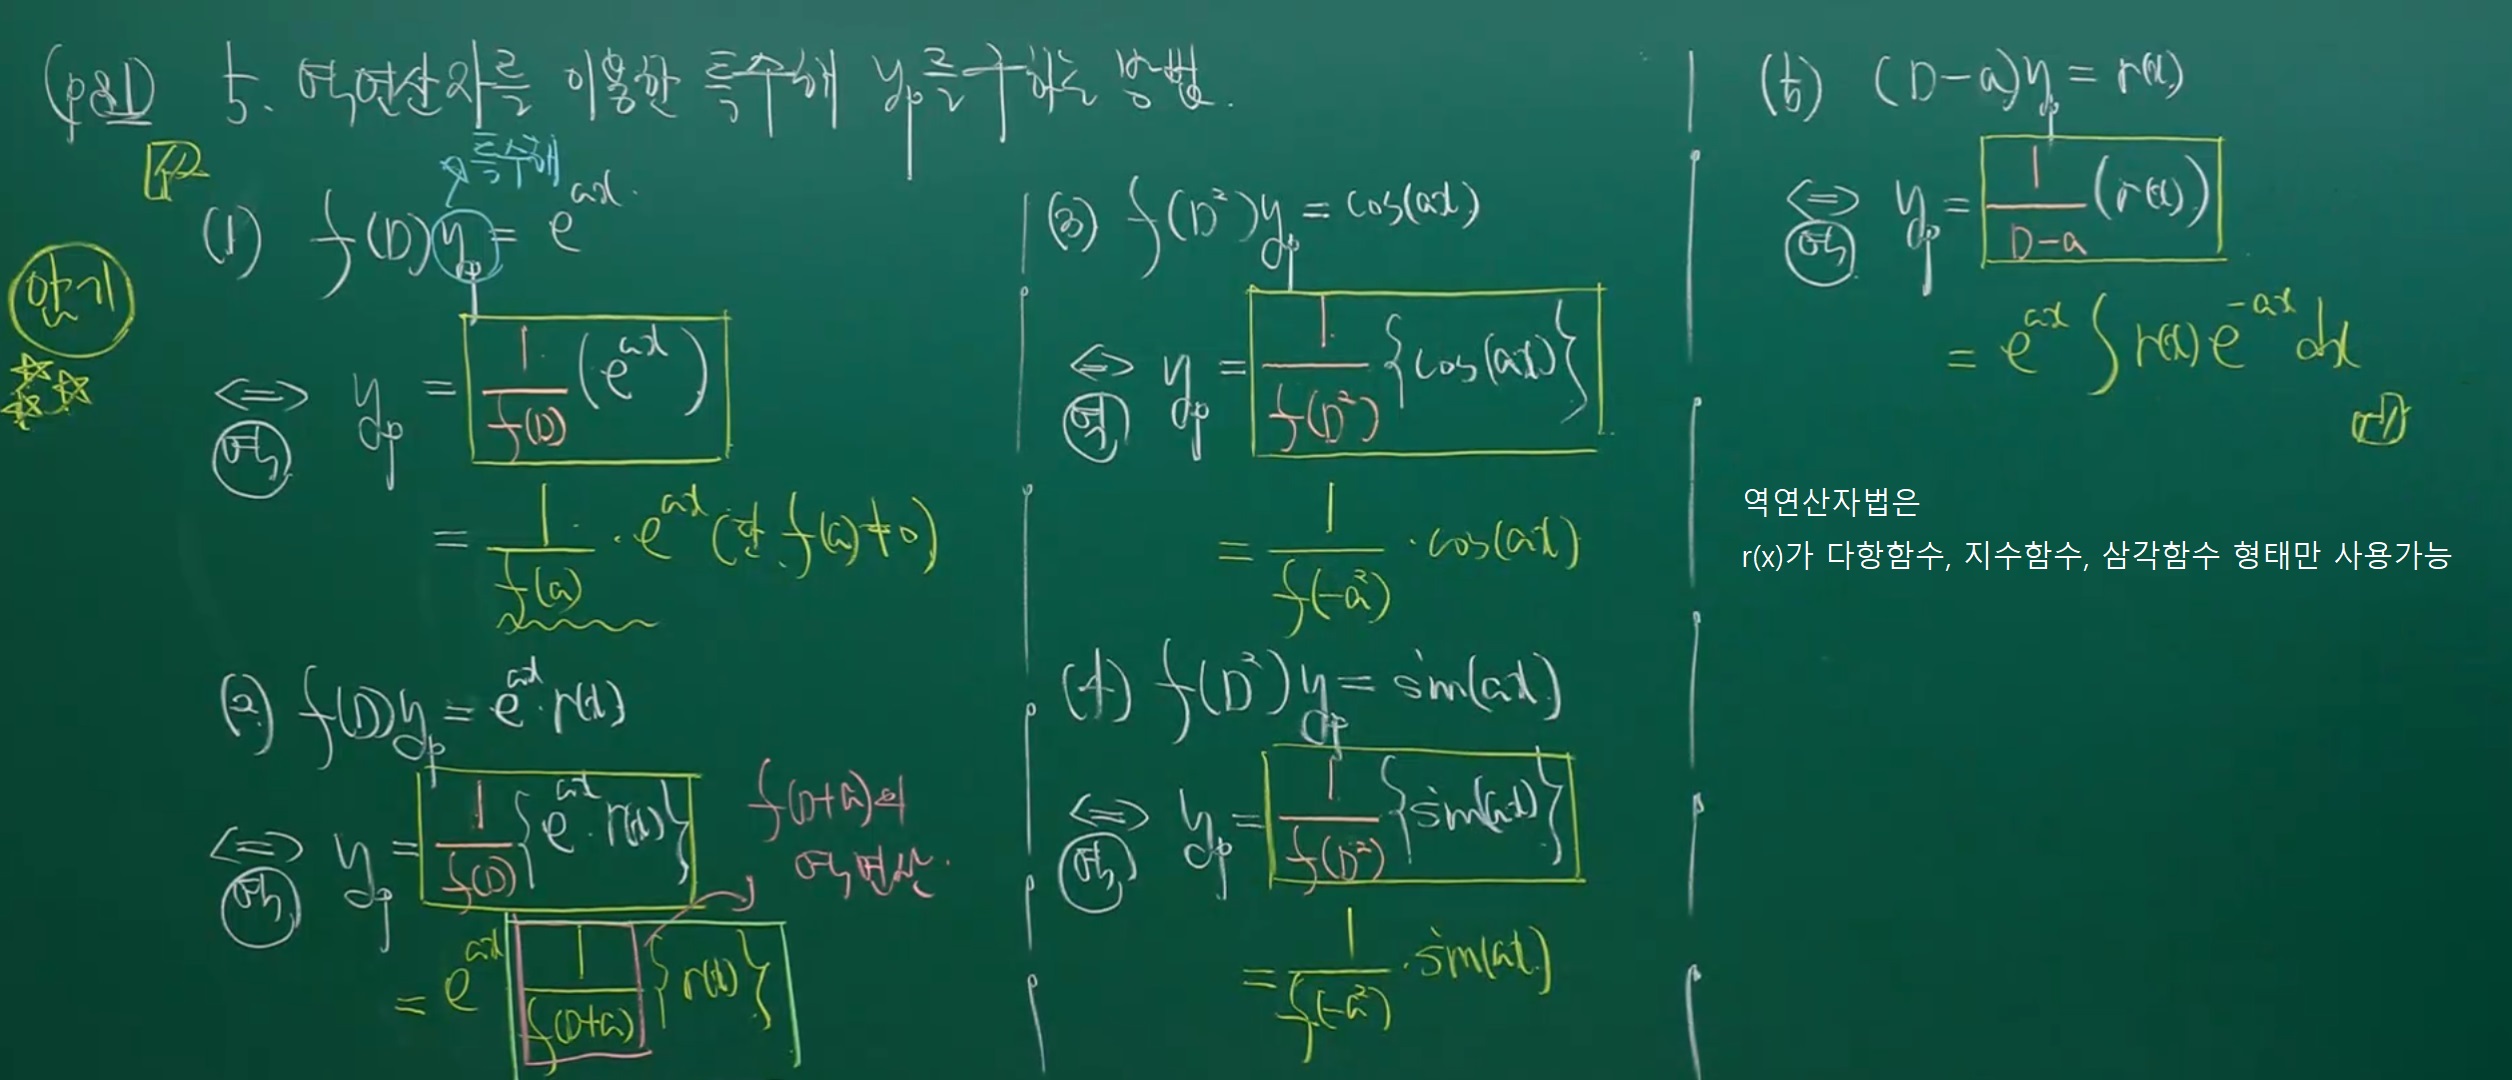 (p81) 5. 역연산자를 이용한 특수해 yp를 구하는 방법.
암기
(1) f(D)yp = e^{ax}
특수해
⟺ yp = 1/f(D) (e^{ax})
역
= 1/f(a) · e^{ax} (단, f(a)≠0)
(2) f(D)yp = e^{ax}·r(x)
⟺ yp = 1/f(D) {e^{ax}·r(x)}
역
f(D+a)의
역연산.
= e^{ax} 1/f(D+a) {r(x)}
(3) f(D²)yp = cos(ax)
⟺ yp = 1/f(D²) {cos(ax)}
역
= 1/f(-a²) · cos(ax)
(4) f(D²)yp = sin(ax)
⟺ yp = 1/f(D²) {sin(ax)}
역
= 1/f(-a²) · sin(ax)
(5) (D-a)yp = r(x)
⟺ yp = 1/(D-a) (r(x))
역
= e^{ax} ∫ r(x) e^{-ax} dx
역연산자법은
r(x)가 다항함수, 지수함수, 삼각함수 형태만 사용가능